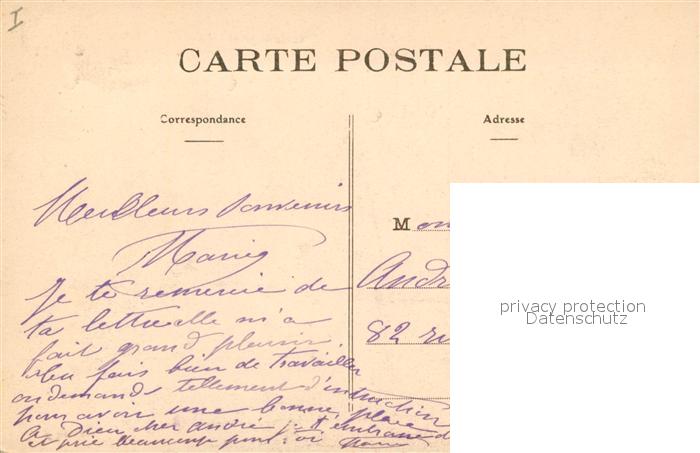 I
CARTE POSTALE
Correspondance
Adresse
Meilleurs Souvenirs
Marie
Je te remercie de
ta lettre elle m'a
fait grand plaisir.
tu fais bien de travailler
on demande tellement d'instruction
pour avoir une bonne place
A Dieu cher andré je t'embrasse
et prie beaucoup pour toi Marie
M
André
82 ru
privacy protection
Datenschutz